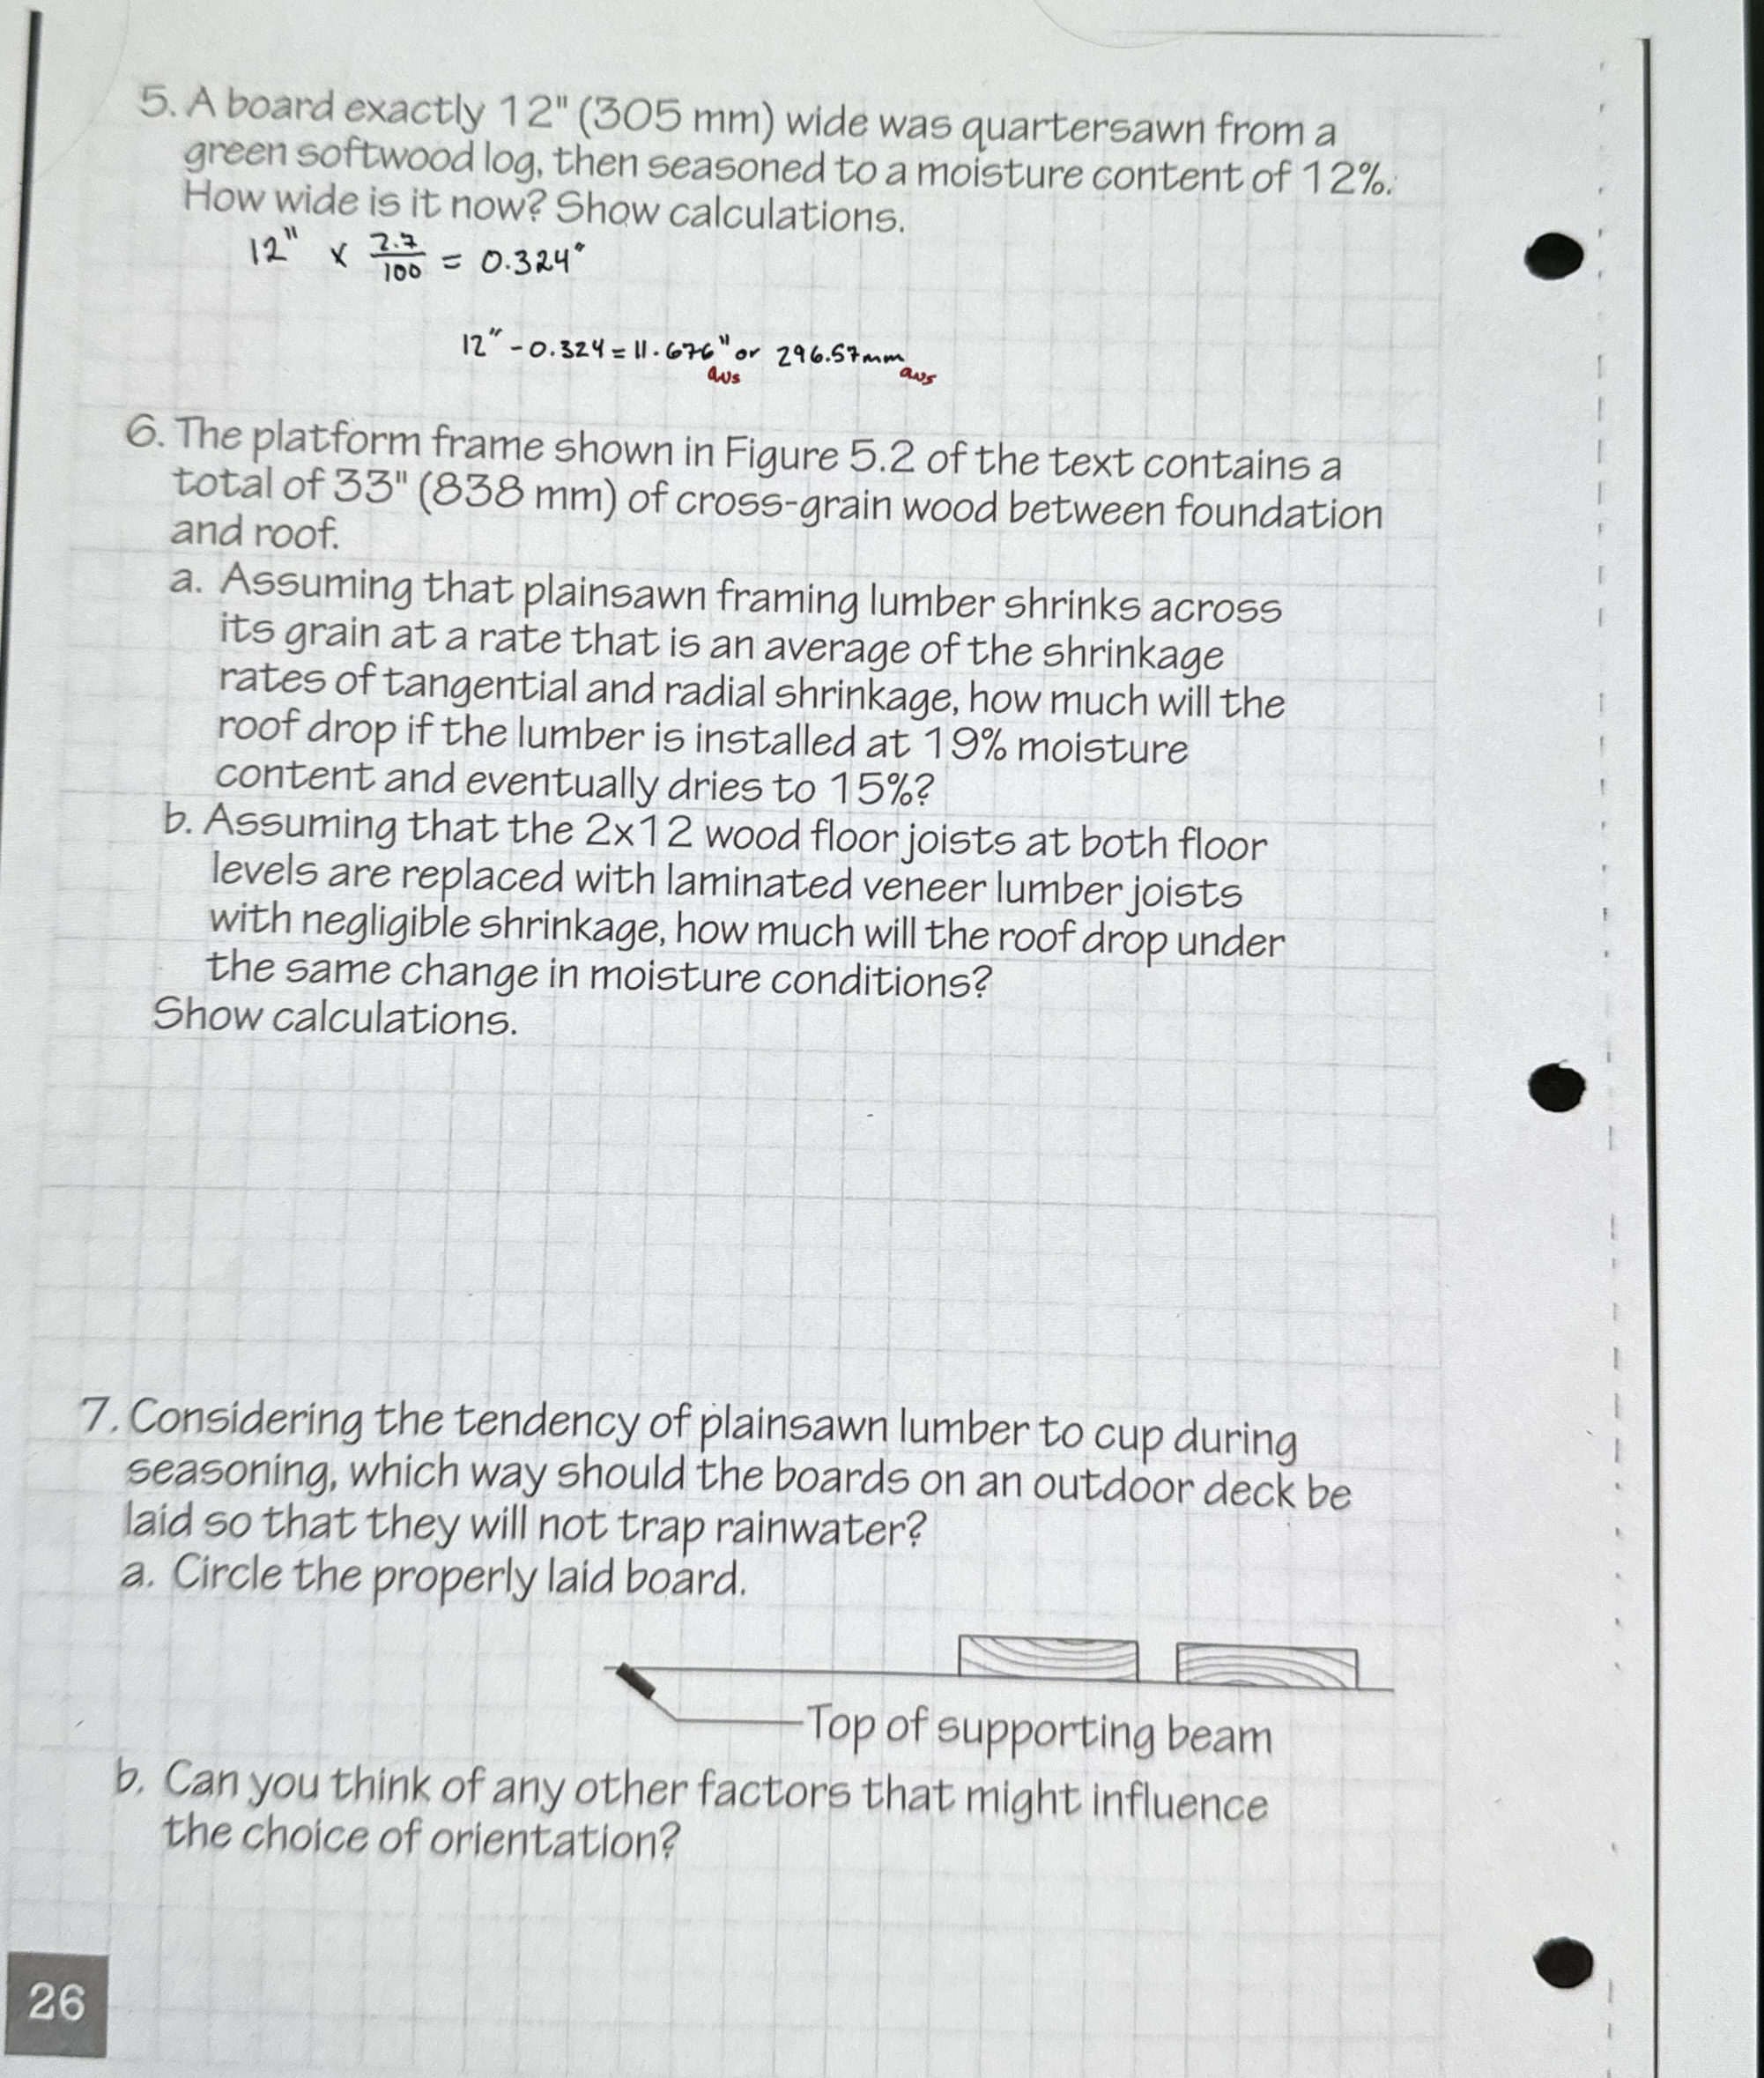 5. A board exactly 12" (305 mm) wide was quartersawn from a
green softwood log, then seasoned to a moisture content of 12%.
How wide is it now? Show calculations.
12" x 2.7/100 = 0.324"
12" - 0.324 = 11.676" or 296.57mm
ans ans
6. The platform frame shown in Figure 5.2 of the text contains a
total of 33" (838 mm) of cross-grain wood between foundation
and roof.
a. Assuming that plainsawn framing lumber shrinks across
its grain at a rate that is an average of the shrinkage
rates of tangential and radial shrinkage, how much will the
roof drop if the lumber is installed at 19% moisture
content and eventually dries to 15%?
b. Assuming that the 2x12 wood floor joists at both floor
levels are replaced with laminated veneer lumber joists
with negligible shrinkage, how much will the roof drop under
the same change in moisture conditions?
Show calculations.
7. Considering the tendency of plainsawn lumber to cup during
seasoning, which way should the boards on an outdoor deck be
laid so that they will not trap rainwater?
a. Circle the properly laid board.
Top of supporting beam
b. Can you think of any other factors that might influence
the choice of orientation?
26